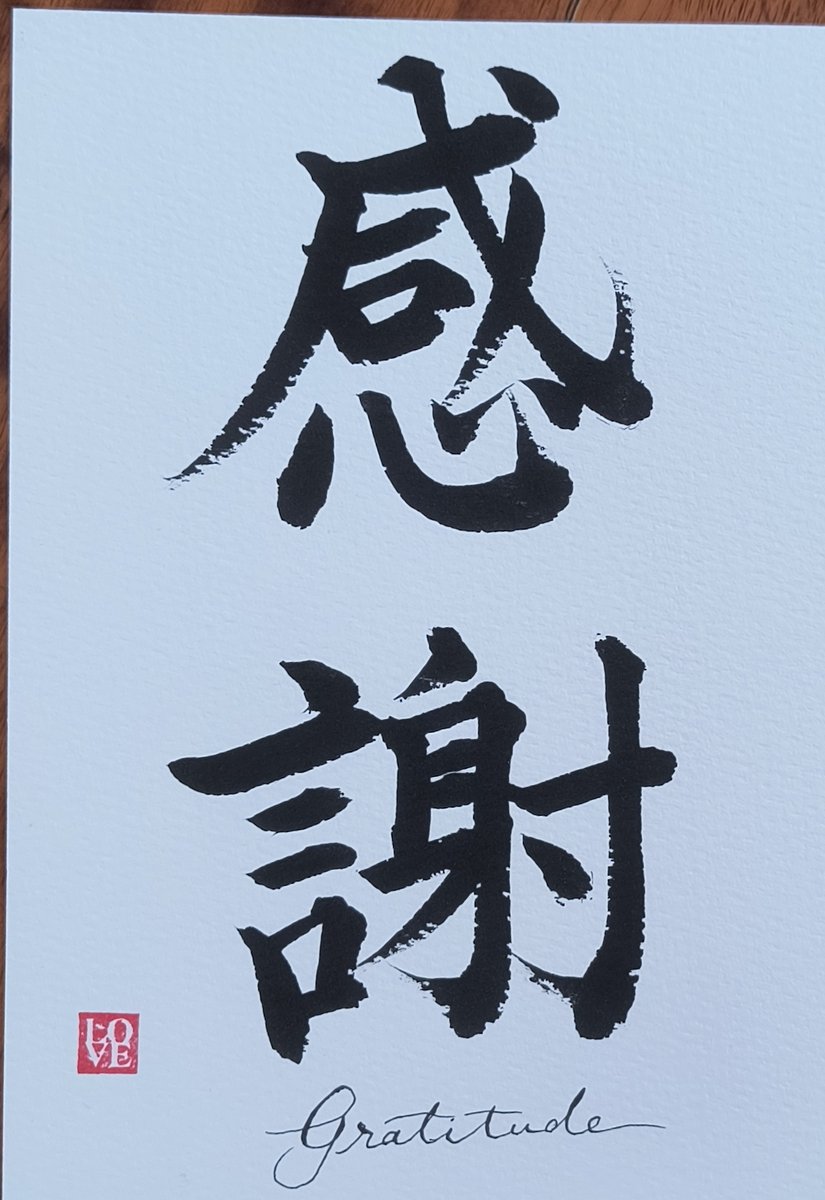 感
謝
LO
VE
Gratitude